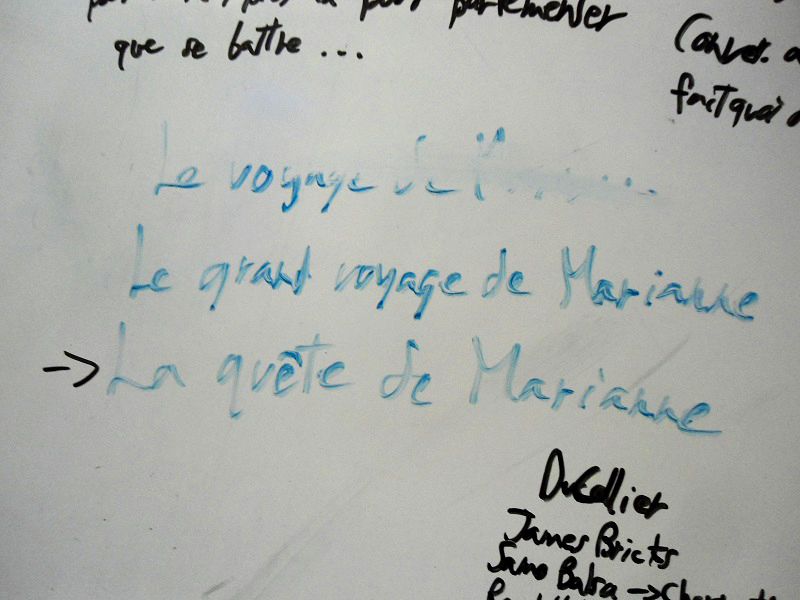 parlementer
que se battre ...
fait quoi
Le voyage de l'
Le grand voyage de Marianne
→ La quête de Marianne
James Bricks
Samo Balsa →